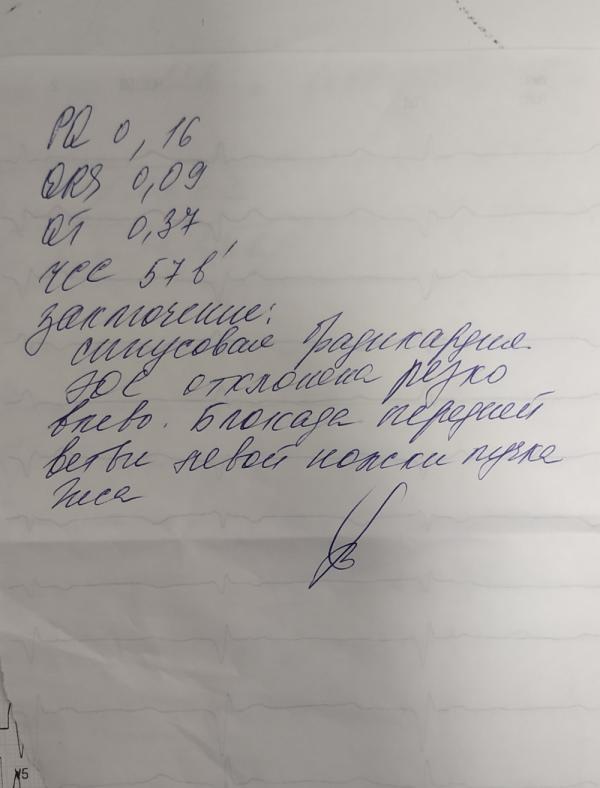 PQ 0,16
QRS 0,09
QT 0,37
ЧСС 57 в'
Заключение:
синусовая брадикардия
ЭОС отклонена резко
влево. Блокада передней
ветви левой ножки пучка
Гиса
V5